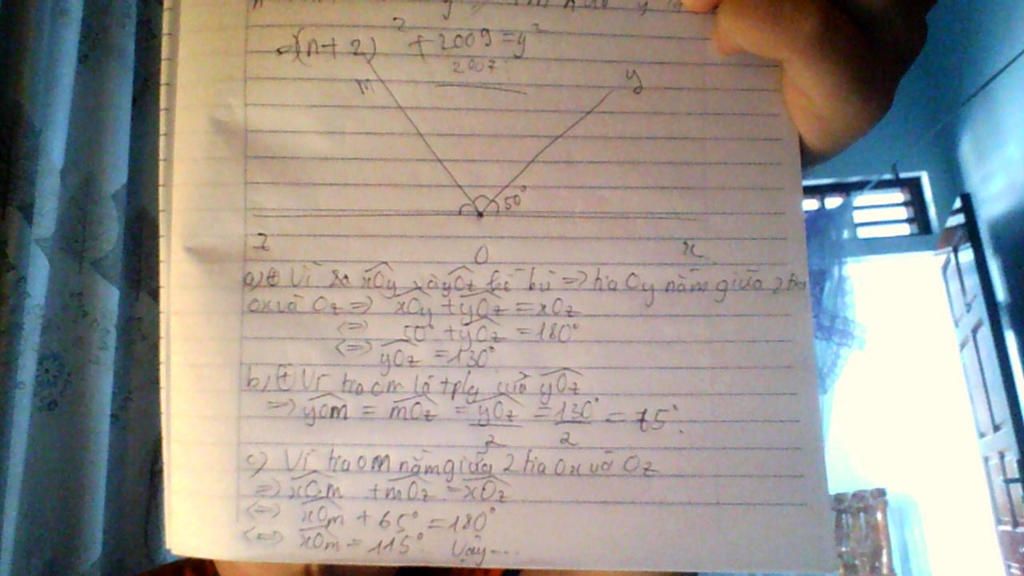 (n+2)² + 2009 = y²
2007
m
y
50°
z
O
x
a) Vì xOy và yOz kề bù => tia Oy nằm giữa 2 tia
Ox và Oz => xOy + yOz = xOz
<=> 50° + yOz = 180°
<=> yOz = 130°
b) Vì tia Om là tpg của yOz
=> yOm = mOz = yOz/2 = 130°/2 = 65°.
c) Vì tia Om nằm giữa 2 tia Ox và Oz
=> xOm + mOz = xOz
<=> xOm + 65° = 180°
<=> xOm = 115° Vậy...